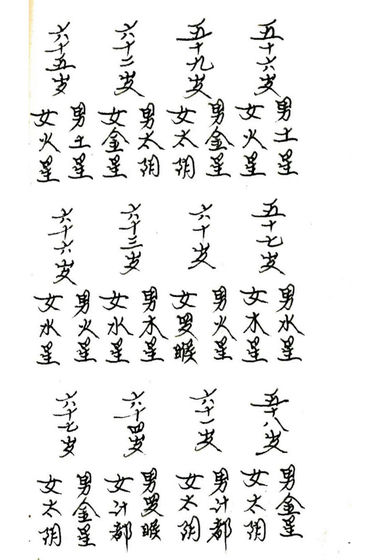 五十六岁
男土星
女火星
五十七岁
男水星
女木星
五十八岁
男金星
女太阴
五十九岁
男金星
女太阴
六十岁
男火星
女罗睺
六十一岁
男计都
女太阴
六十二岁
男太阴
女金星
六十三岁
男木星
女水星
六十四岁
男罗睺
女计都
六十五岁
男土星
女火星
六十六岁
男火星
女水星
六十七岁
男金星
女太阴